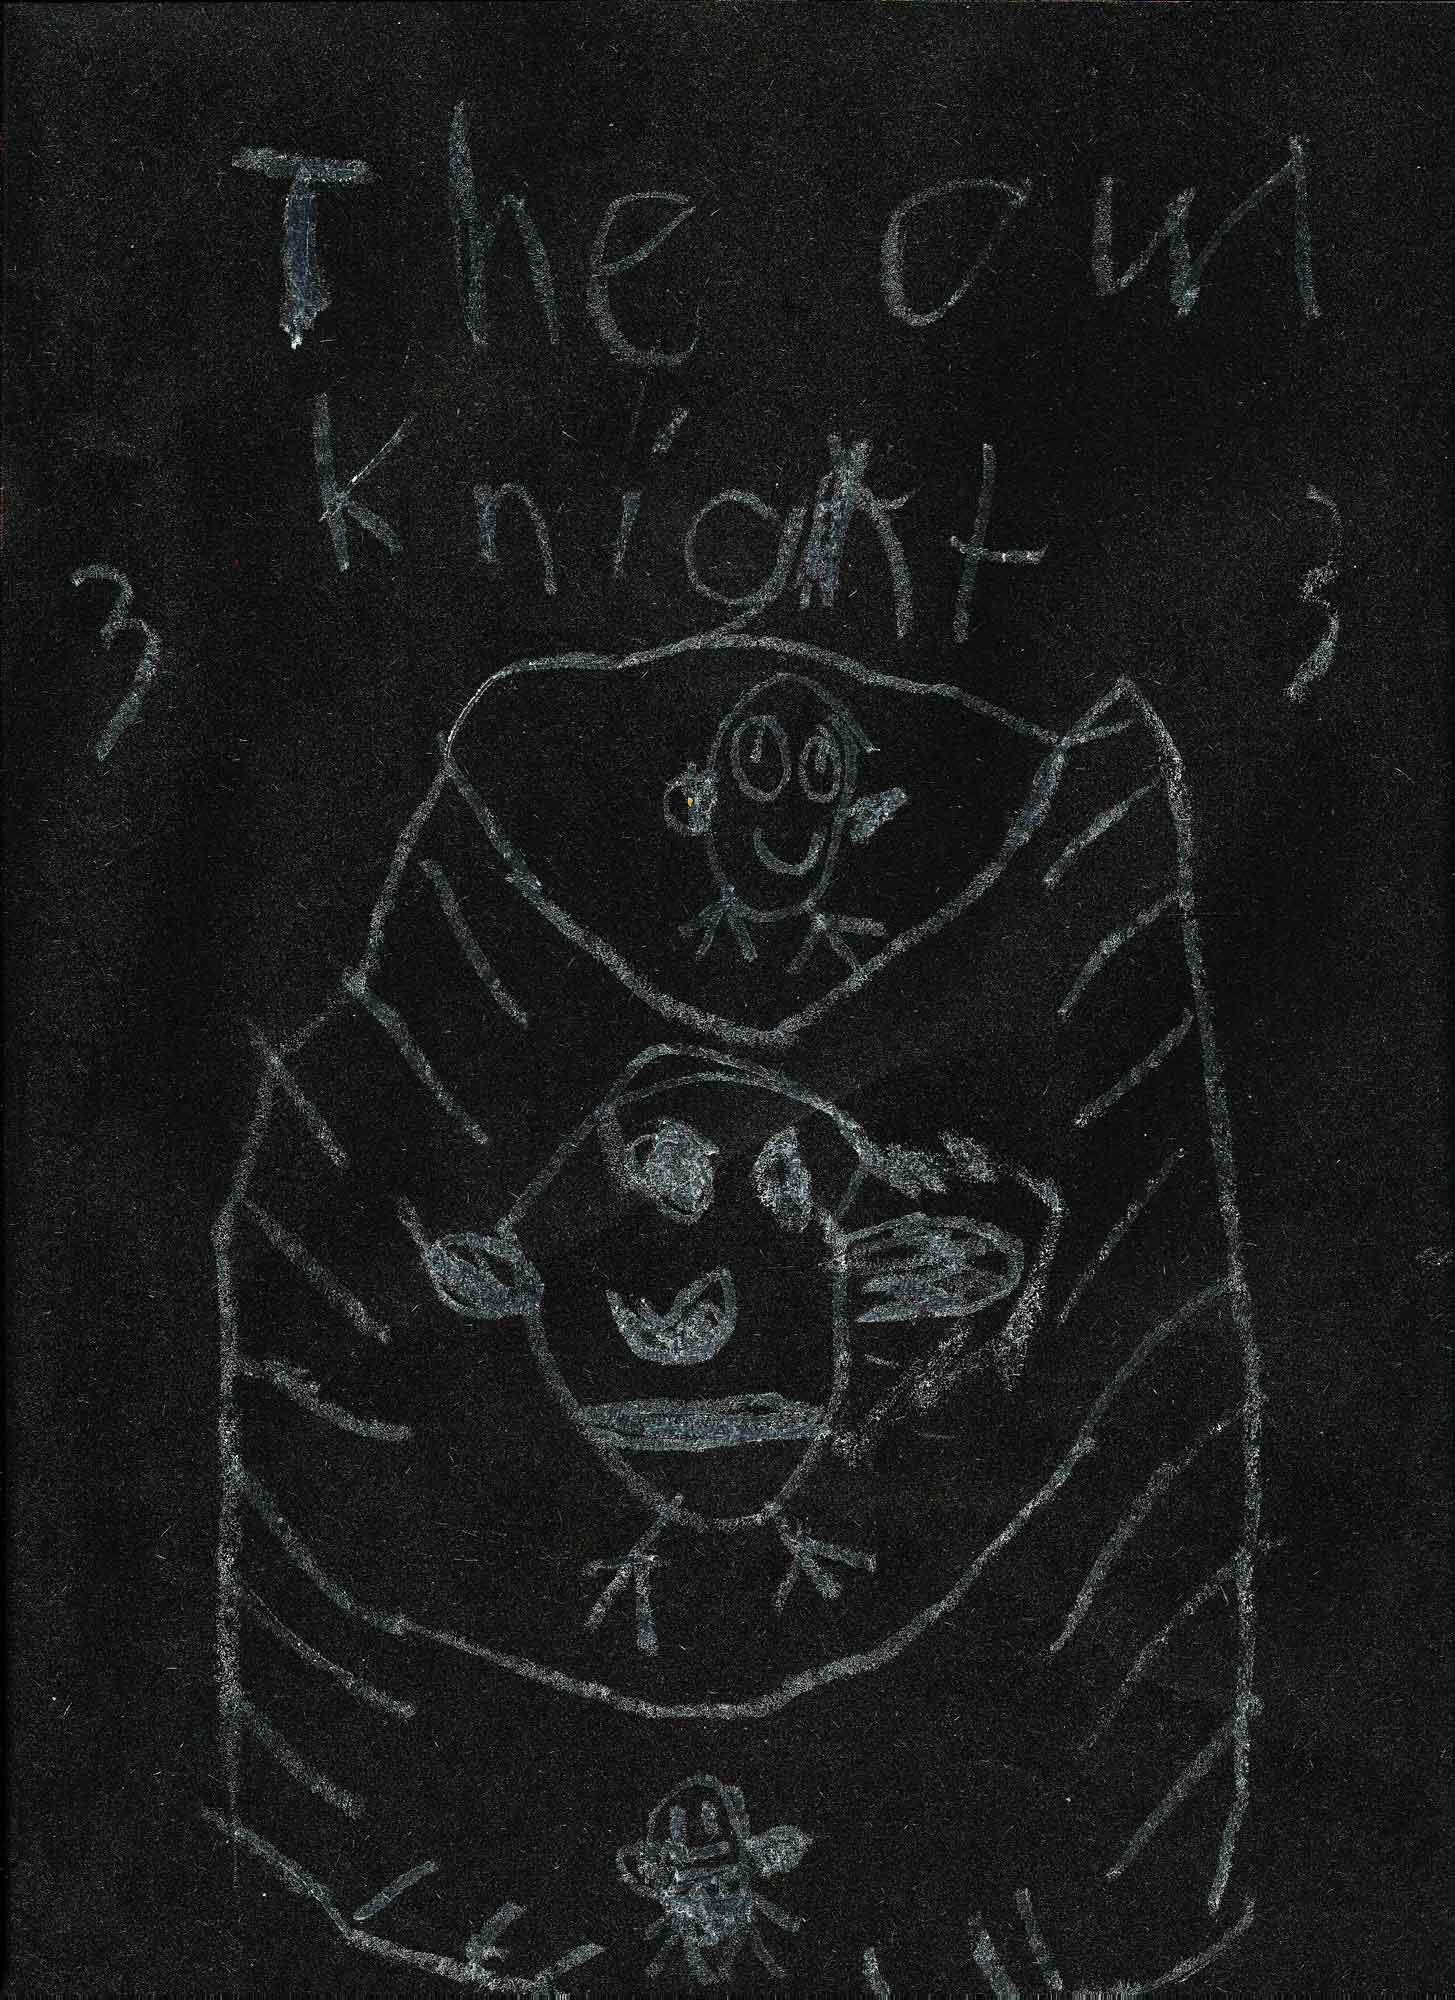 The owl
knight